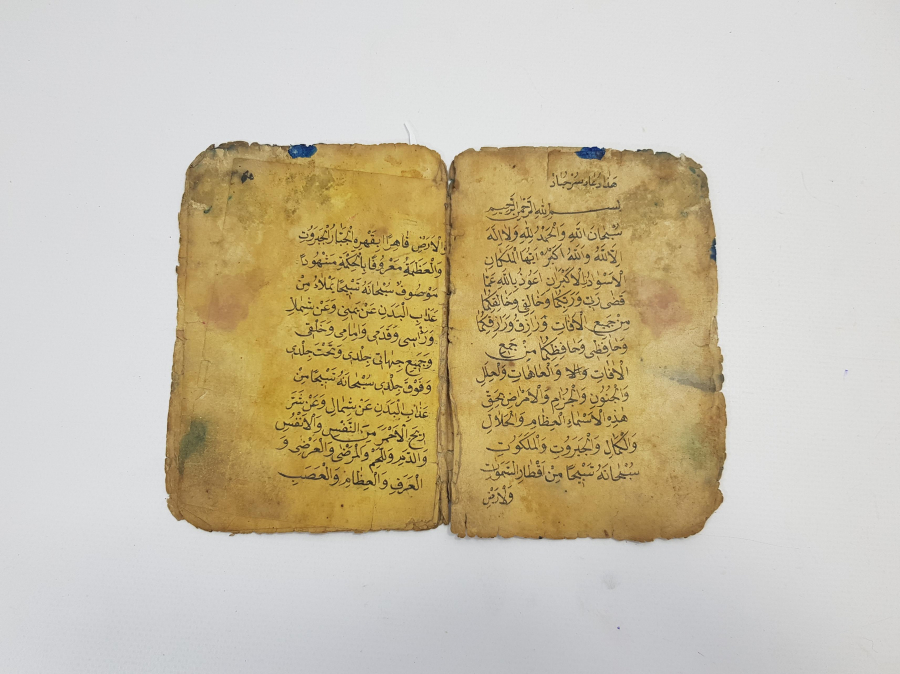 هذا دعاء سرخباد
بسم الله الرحمن الرحيم
سُبْحَانَ اللّٰهِ وَالْحَمْدُ لِلّٰهِ وَلَا اِلٰهَ
اِلَّا اللّٰهُ وَاللّٰهُ اَكْبَرُ اَيُّهَا الْمَلَكَانِ
الْاَسْوَدَانِ الْاَكْبَرَانِ اَعُوذُ بِاللّٰهِ عَمَّا
قَضٰى رَبِّي وَرَبُّكُمَا وَخَالِقِي وَخَالِقُكُمَا
مِنْ جَمِيعِ الْاٰفَاتِ وَرَازِقِي وَرَازِقُكُمَا
وَحَافِظِي وَحَافِظُكُمَا مِنْ جَمِيعِ
الْاٰفَاتِ وَالْعَاهَاتِ وَالْعِلَلِ
وَالْجُنُونِ وَالْجُزَامِ وَالْاَمْرَاضِ بِحَقِّ
هٰذِهِ الْاَسْمَاءِ الْعِظَامِ وَالْجَلَالِ
وَالْكَمَالِ وَالْجَبَرُوتِ وَالْمَلَكُوتِ
سُبْحَانَهُ تَسْبِيحًا مِنْ اَقْطَارِ السَّمٰوَاتِ
وَالْاَرْضِ
وَالْاَرْضِ قَاهِرًا بِقَهْرِهِ الْجَبَّارُ الْجَبَرُوتِ
وَالْعَظَمَةُ مَعْرُوفًا بِالْحِكْمَةِ
مَوْصُوفٌ سُبْحَانَهُ تَسْبِيحًا مِنْ
عَذَابِ الْبَدَنِ عَنْ يَمِينِي وَعَنْ شِمَالِي
وَرَاْسِي وَقَدَمِي وَاَمَامِي وَخَلْفِي
وَجَمِيعِ جِهَاتِي جِلْدِي وَتَحْتَ جِلْدِي
وَفَوْقَ جِلْدِي سُبْحَانَهُ تَسْبِيحًا مِنْ
عَذَابِ الْبَدَنِ عَنْ شِمَالٍ وَعَنْ شَرِّ
رِيحِ الْاَحْمَرِ مِنَ النَّفْسِ وَالْاَنْفُسِ
وَالدَّمِ وَاللَّحْمِ وَ
وَالْعِظَامِ وَالْعَصَبِ